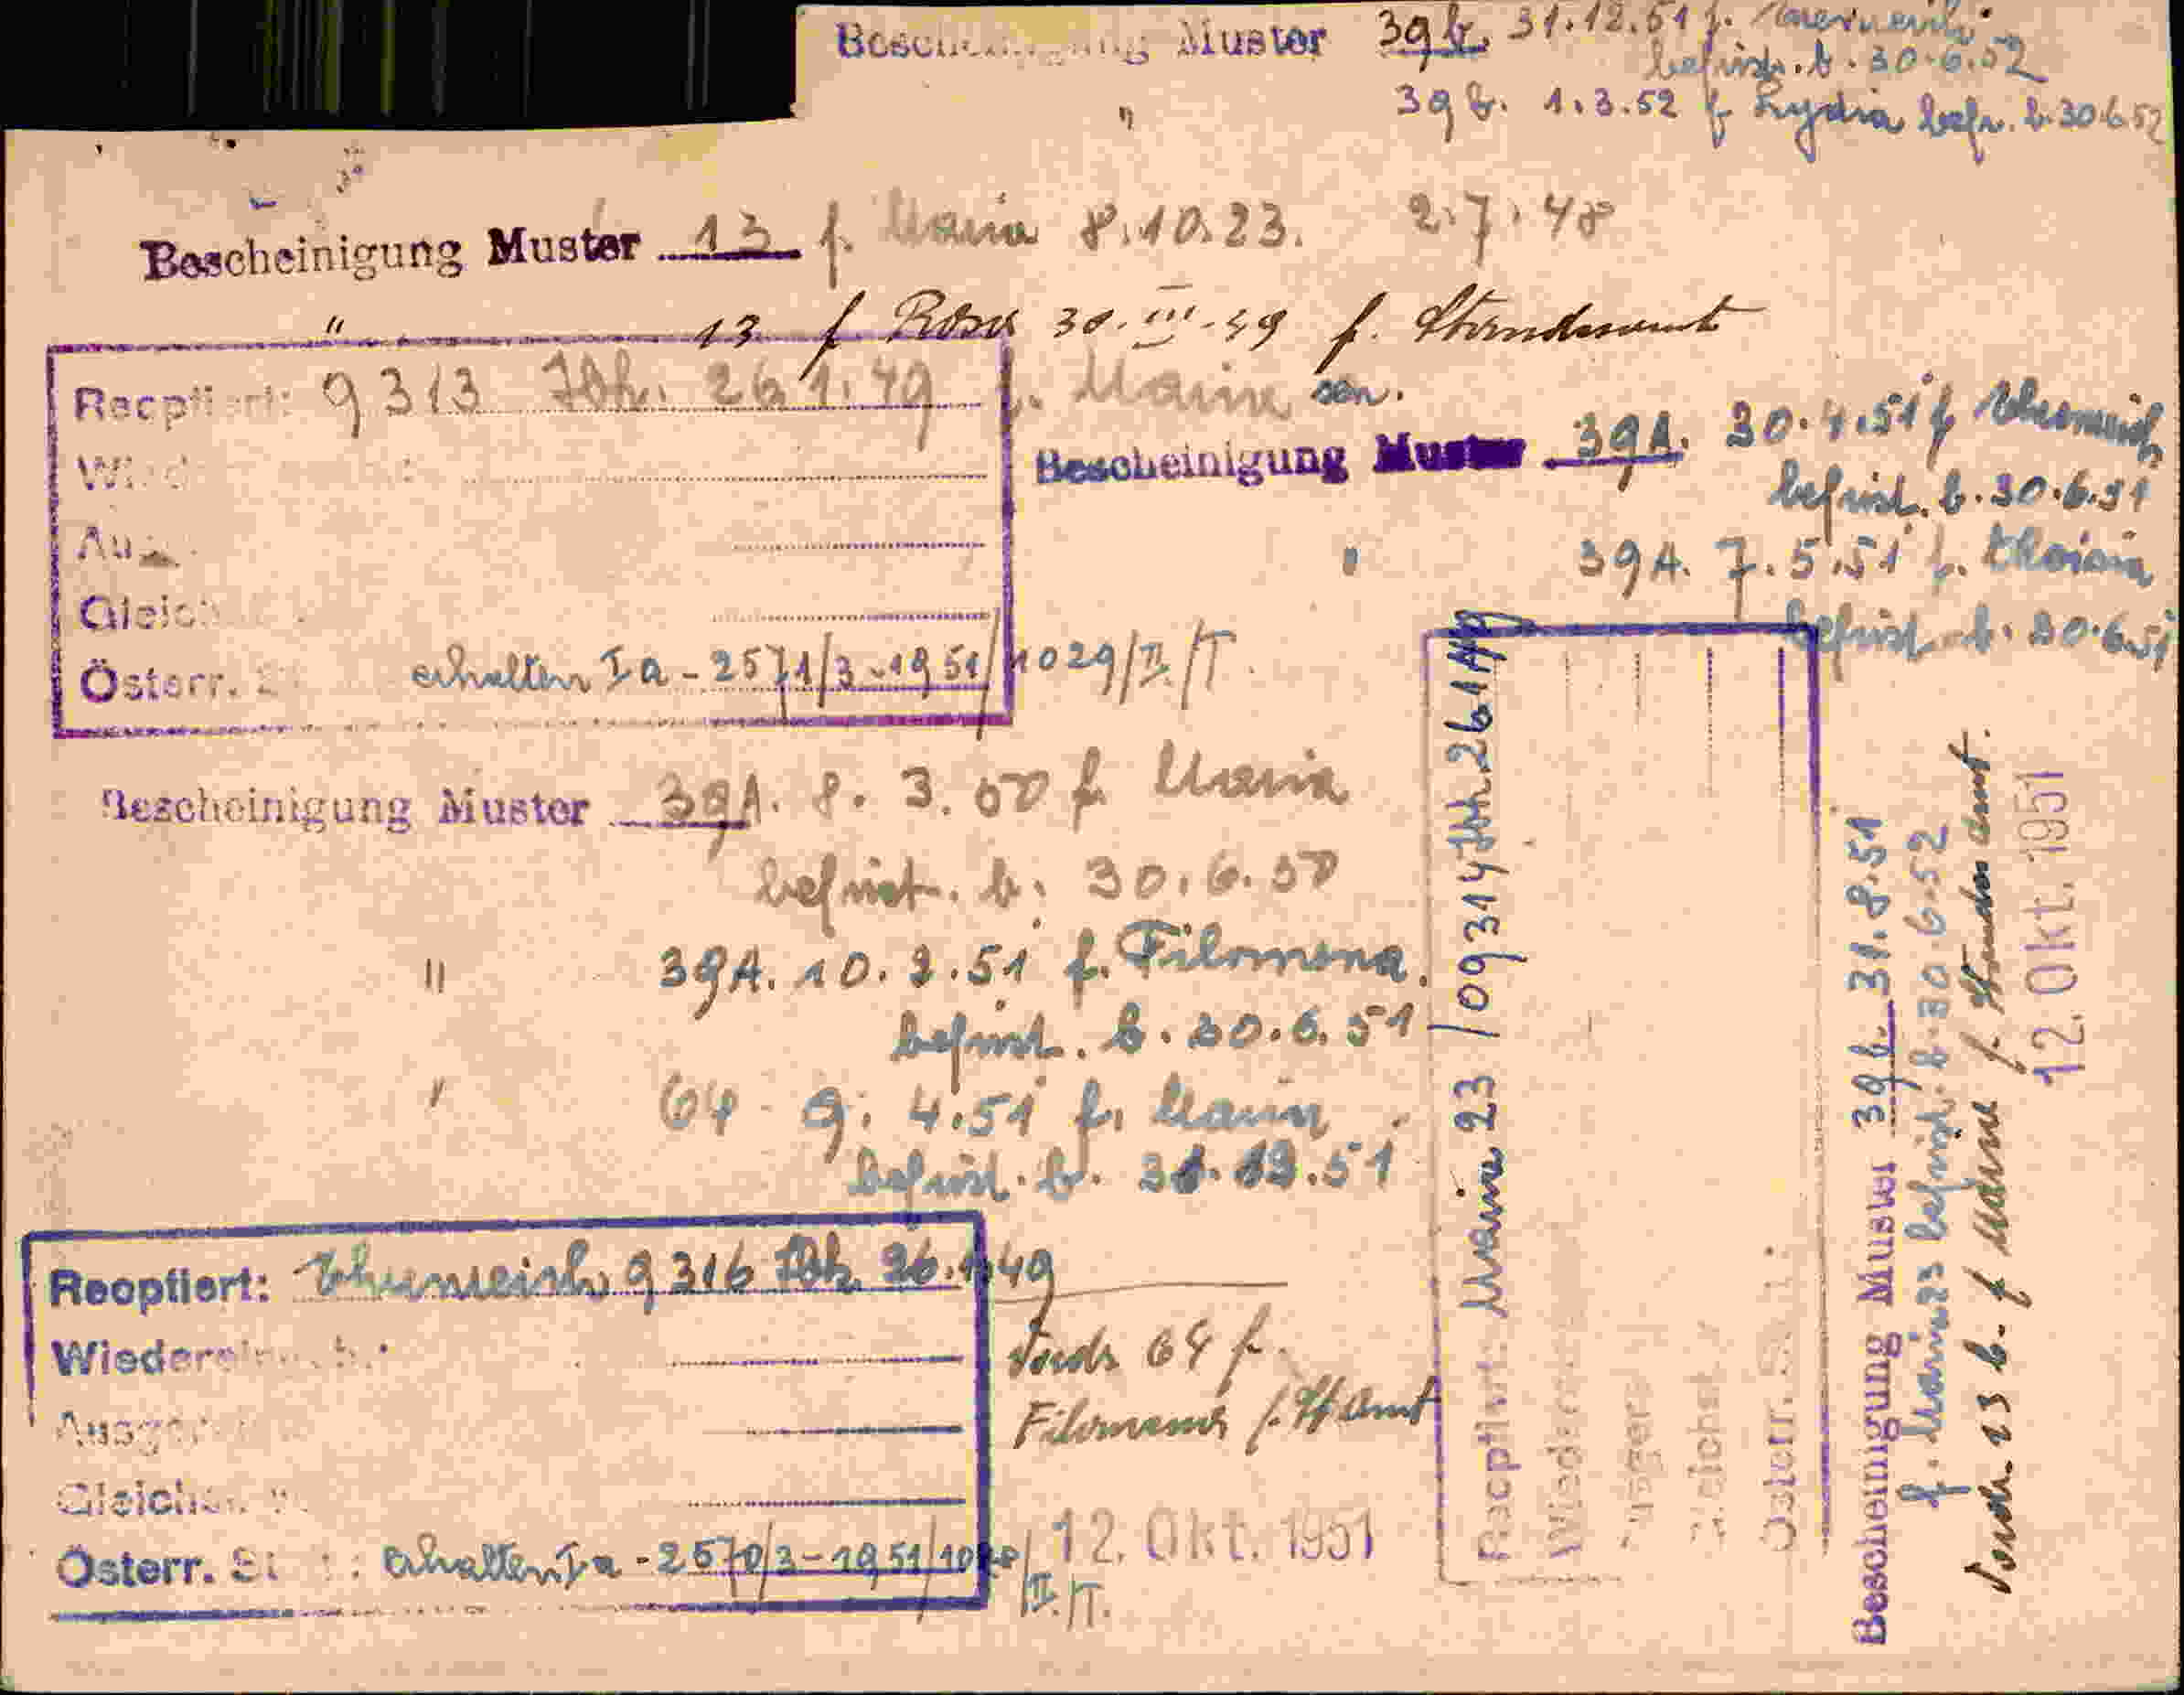 Bescheinigung Muster 39 b. 31.12.51 f.
befrist. b. 30.6.52
" 39 b. 1.3.52 f Lydia befr. b. 30.6.52
Bescheinigung Muster 13 f. Maria 8.10.23. 2.7.48
" 13 f Rosa 30.III.49 f. Standesamt
Reoptiert: 9313 Jbk. 26.1.49 f. Maria sen.
Wied :
Au
Gleich
Österr. erhalten Ia - 2571/3-1951/1029/II/T.
Bescheinigung Muster 39A. 30.4.51 f
befrist. b. 30.6.51
" 39A. 7.5.51 f. Maria
befrist. b. 30.6.51
Bescheinigung Muster 39A. 8.3.50 f. Maria
befrist. b. 30.6.50
" 39A. 10.3.51 f. Filomena.
befrist. b. 30.6.51
" 64 - 9.4.51 f. Maria
befrist. b. 31.12.51
Reoptiert: 9316 Jbk. 26.1.49
Wiederein
Ausge
Gleich
Österr. St : erhalten Ia - 2570/3-1951/1028/
II./T.
64 f.
Filomena f. St Amt
12. Okt. 1951
Reoptiert: Maria 23 /09314 Jbk. 26.1.49
Wieder
Ausger
Gleichst
Österr.
Bescheinigung Muster 39 b. 31.8.51
f. Maria 23 befrist. b. 30.6.52
23 b. f Maria f. Standesamt.
12. Okt. 1951